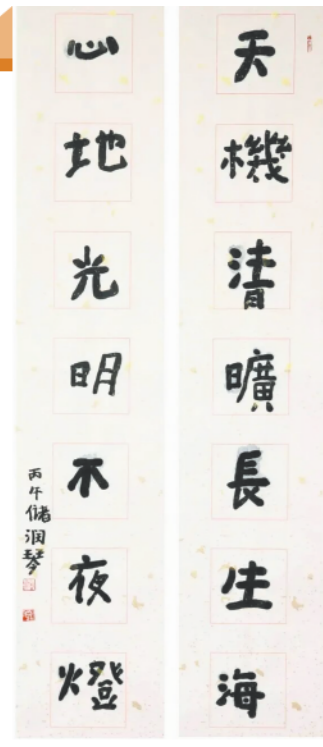 天機清曠長生海
心地光明不夜燈
丙午儲潤琴